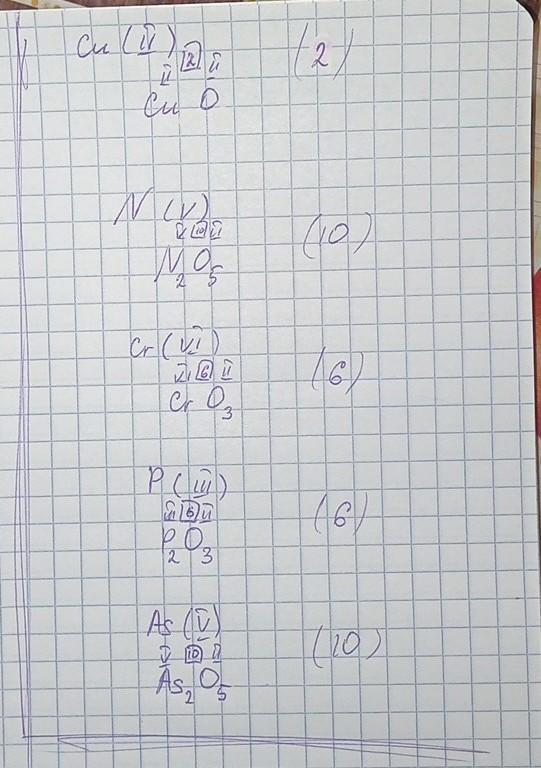 Cu (II)
II 2 II (2)
Cu O
N (V)
V 10 II (10)
N2O5
Cr (VI)
VI 6 II (6)
Cr O3
P (III)
III 6 II (6)
P2O3
As (V)
V 10 II (10)
As2O5